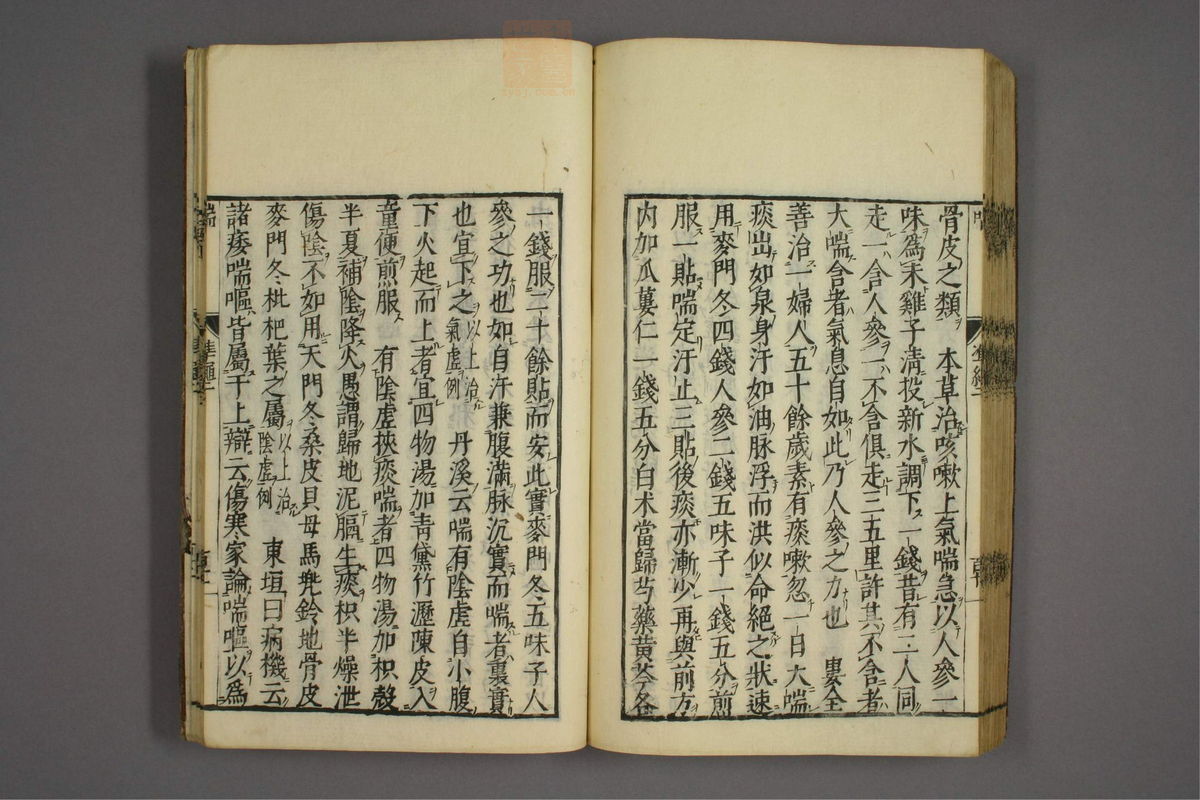 骨皮之類　本草治咳嗽上氣喘急以人參一
味爲末雞子清投新水調下一錢昔有二人同
走一含人參一不含俱走三五里許其不含者
大喘含者氣息自如此乃人參之力也　婁全
善治一婦人五十餘歲素有痰嗽忽一日大喘
痰出如泉身汗如油脉浮而洪似命絕之狀速
用麥門冬四錢人參二錢五味子一錢五分煎
服一貼喘定汗止三貼後痰亦漸少再與前方
内加瓜蔞仁一錢五分白术當歸芍藥黄芩各
一錢服二十餘貼而安此實麥門冬五味子人
參之功也如自汗兼腹滿脉沉實而喘者裏實
也宜下之以上治氣虚例　丹溪云喘有陰虚自小腹
下火起而上者宜四物湯加青黛竹瀝陳皮入
童便煎服　有陰虚挾痰喘者四物湯加枳殼
半夏補陰降火愚謂歸地泥膈生痰枳半燥泄
傷陰不如用天門冬桑皮貝母馬兜鈴地骨皮
麥門冬枇杷葉之屬以上治陰虚例　東垣曰病機云
諸痿喘嘔皆屬于上辯云傷寒家論喘嘔以爲
喘